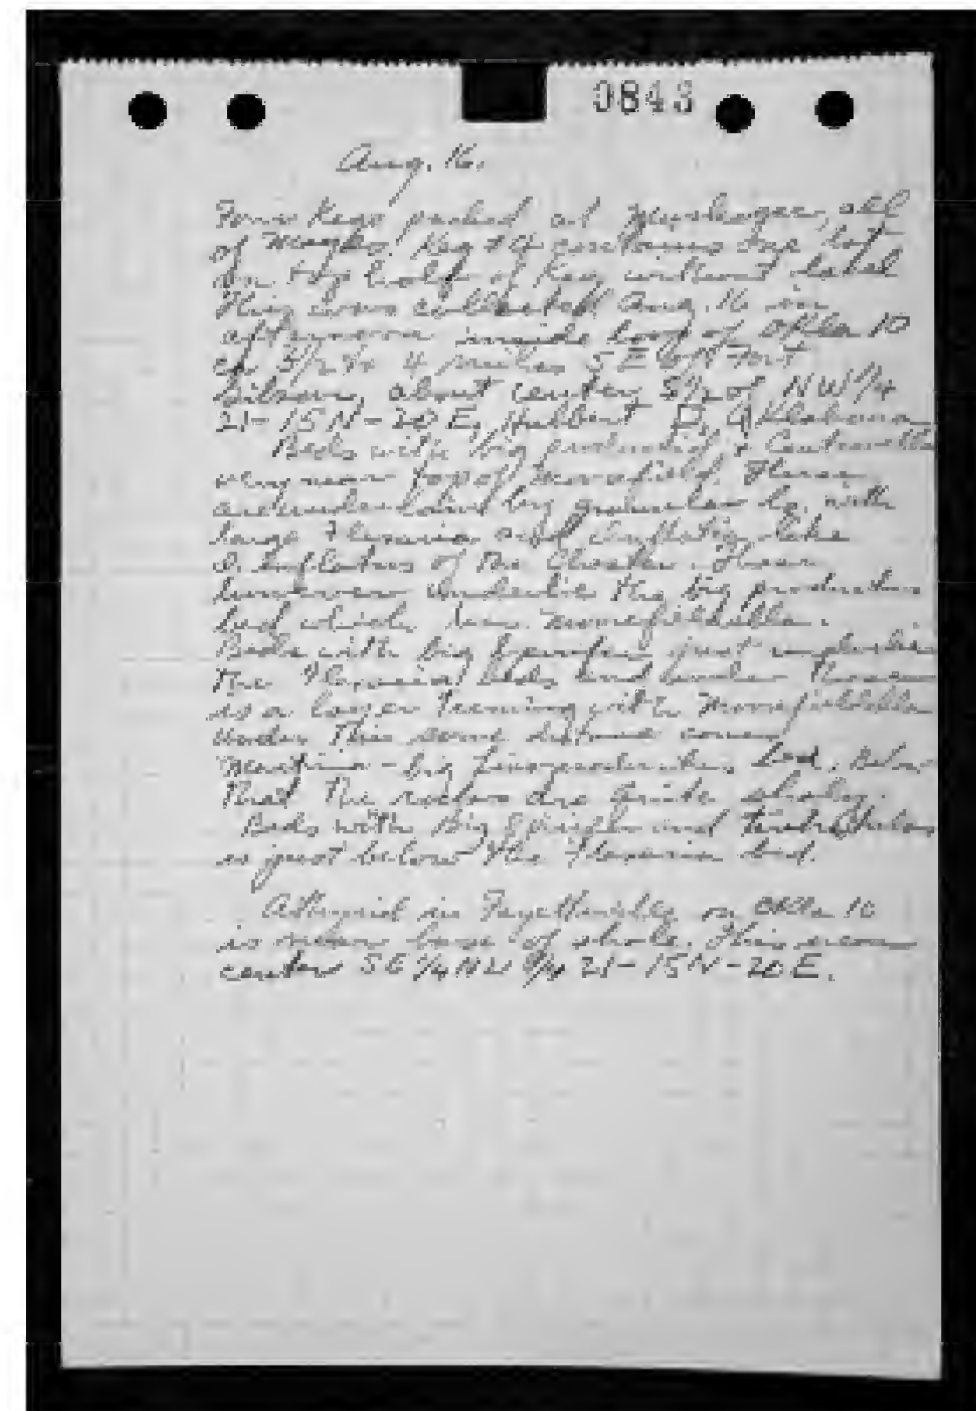 0843
Aug. 16.
Four Kegs packed at Muskogee, all
of Mayes. Keg #4 contains one lot
on top half of Keg without label
This was collected Aug. 16 in
afternoon inside loop of Okla 10
ca 3 1/2 to 4 miles SE of Fort
Gibson, about center S 1/2 of NW 1/4
21-15N-20E, Hulbert Q, Oklahoma.
Beds with big productid & Centronella
very near top of Moorefield. These
are underlain by granular ls. with
large and
of the Chester. These
however underlie the big productus
bed which is Moorefieldella.
Beds with big Spirifer just underlie
the beds and under these
is a layer teeming with Moorefieldella
under this some distance comes
Martinia - big bed. Below
that the rocks are quite shaly.
Beds with Big Spirifer and
is just below the bed.
Athyrid in Fayetteville on Okla 10
is near base of shale. This near
center SE 1/4 NW 1/4 21-15N-20E.